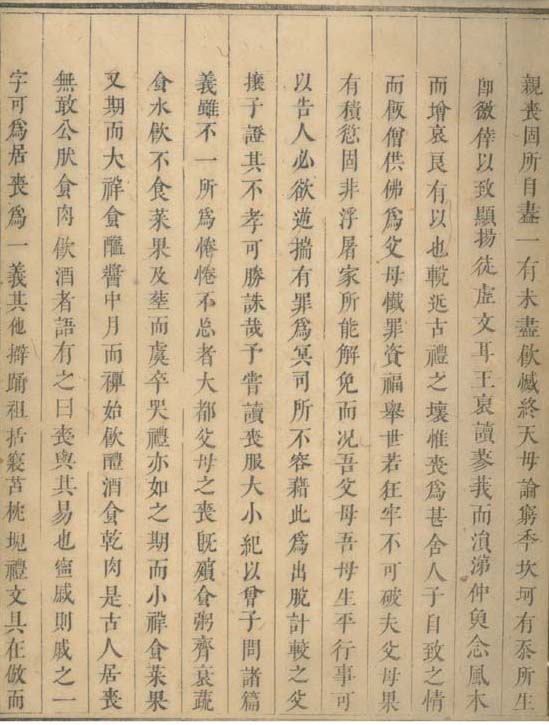 親喪固所自盡一有未盡飲憾終天毋論窮秊坎坷有忝所生
卽徼倖以致顯揚徒虛文耳王裒讀蓼莪而湏涕仲奐念風木
而增哀良有以也輓近古禮之壞惟喪爲甚舍人子自致之情
而佞僧供佛爲父母懺罪資福舉世若狂牢不可破夫父母果
有積愆固非浮屠家所能解免而况吾父母吾母生平行事可
以告人必欲逆揣有罪爲冥司所不容藉此爲出脫計較之父
攘子證其不孝可勝誅哉予嘗讀喪服大小紀以曾子問諸篇
義雖不一所爲惓惓不忘者大都父母之喪旣殯食粥齊衰蔬
食水飲不食菜果及塟而虞卒哭禮亦如之期而小祥食菜果
又期而大祥食醯醬中月而禫始飲醴酒食乾肉是古人居喪
無敢公肰食肉飲酒者語有之曰喪與其易也寧戚則戚之一
字可爲居喪爲一義其他擗踊袒括寢苫枕塊禮文具在倣而